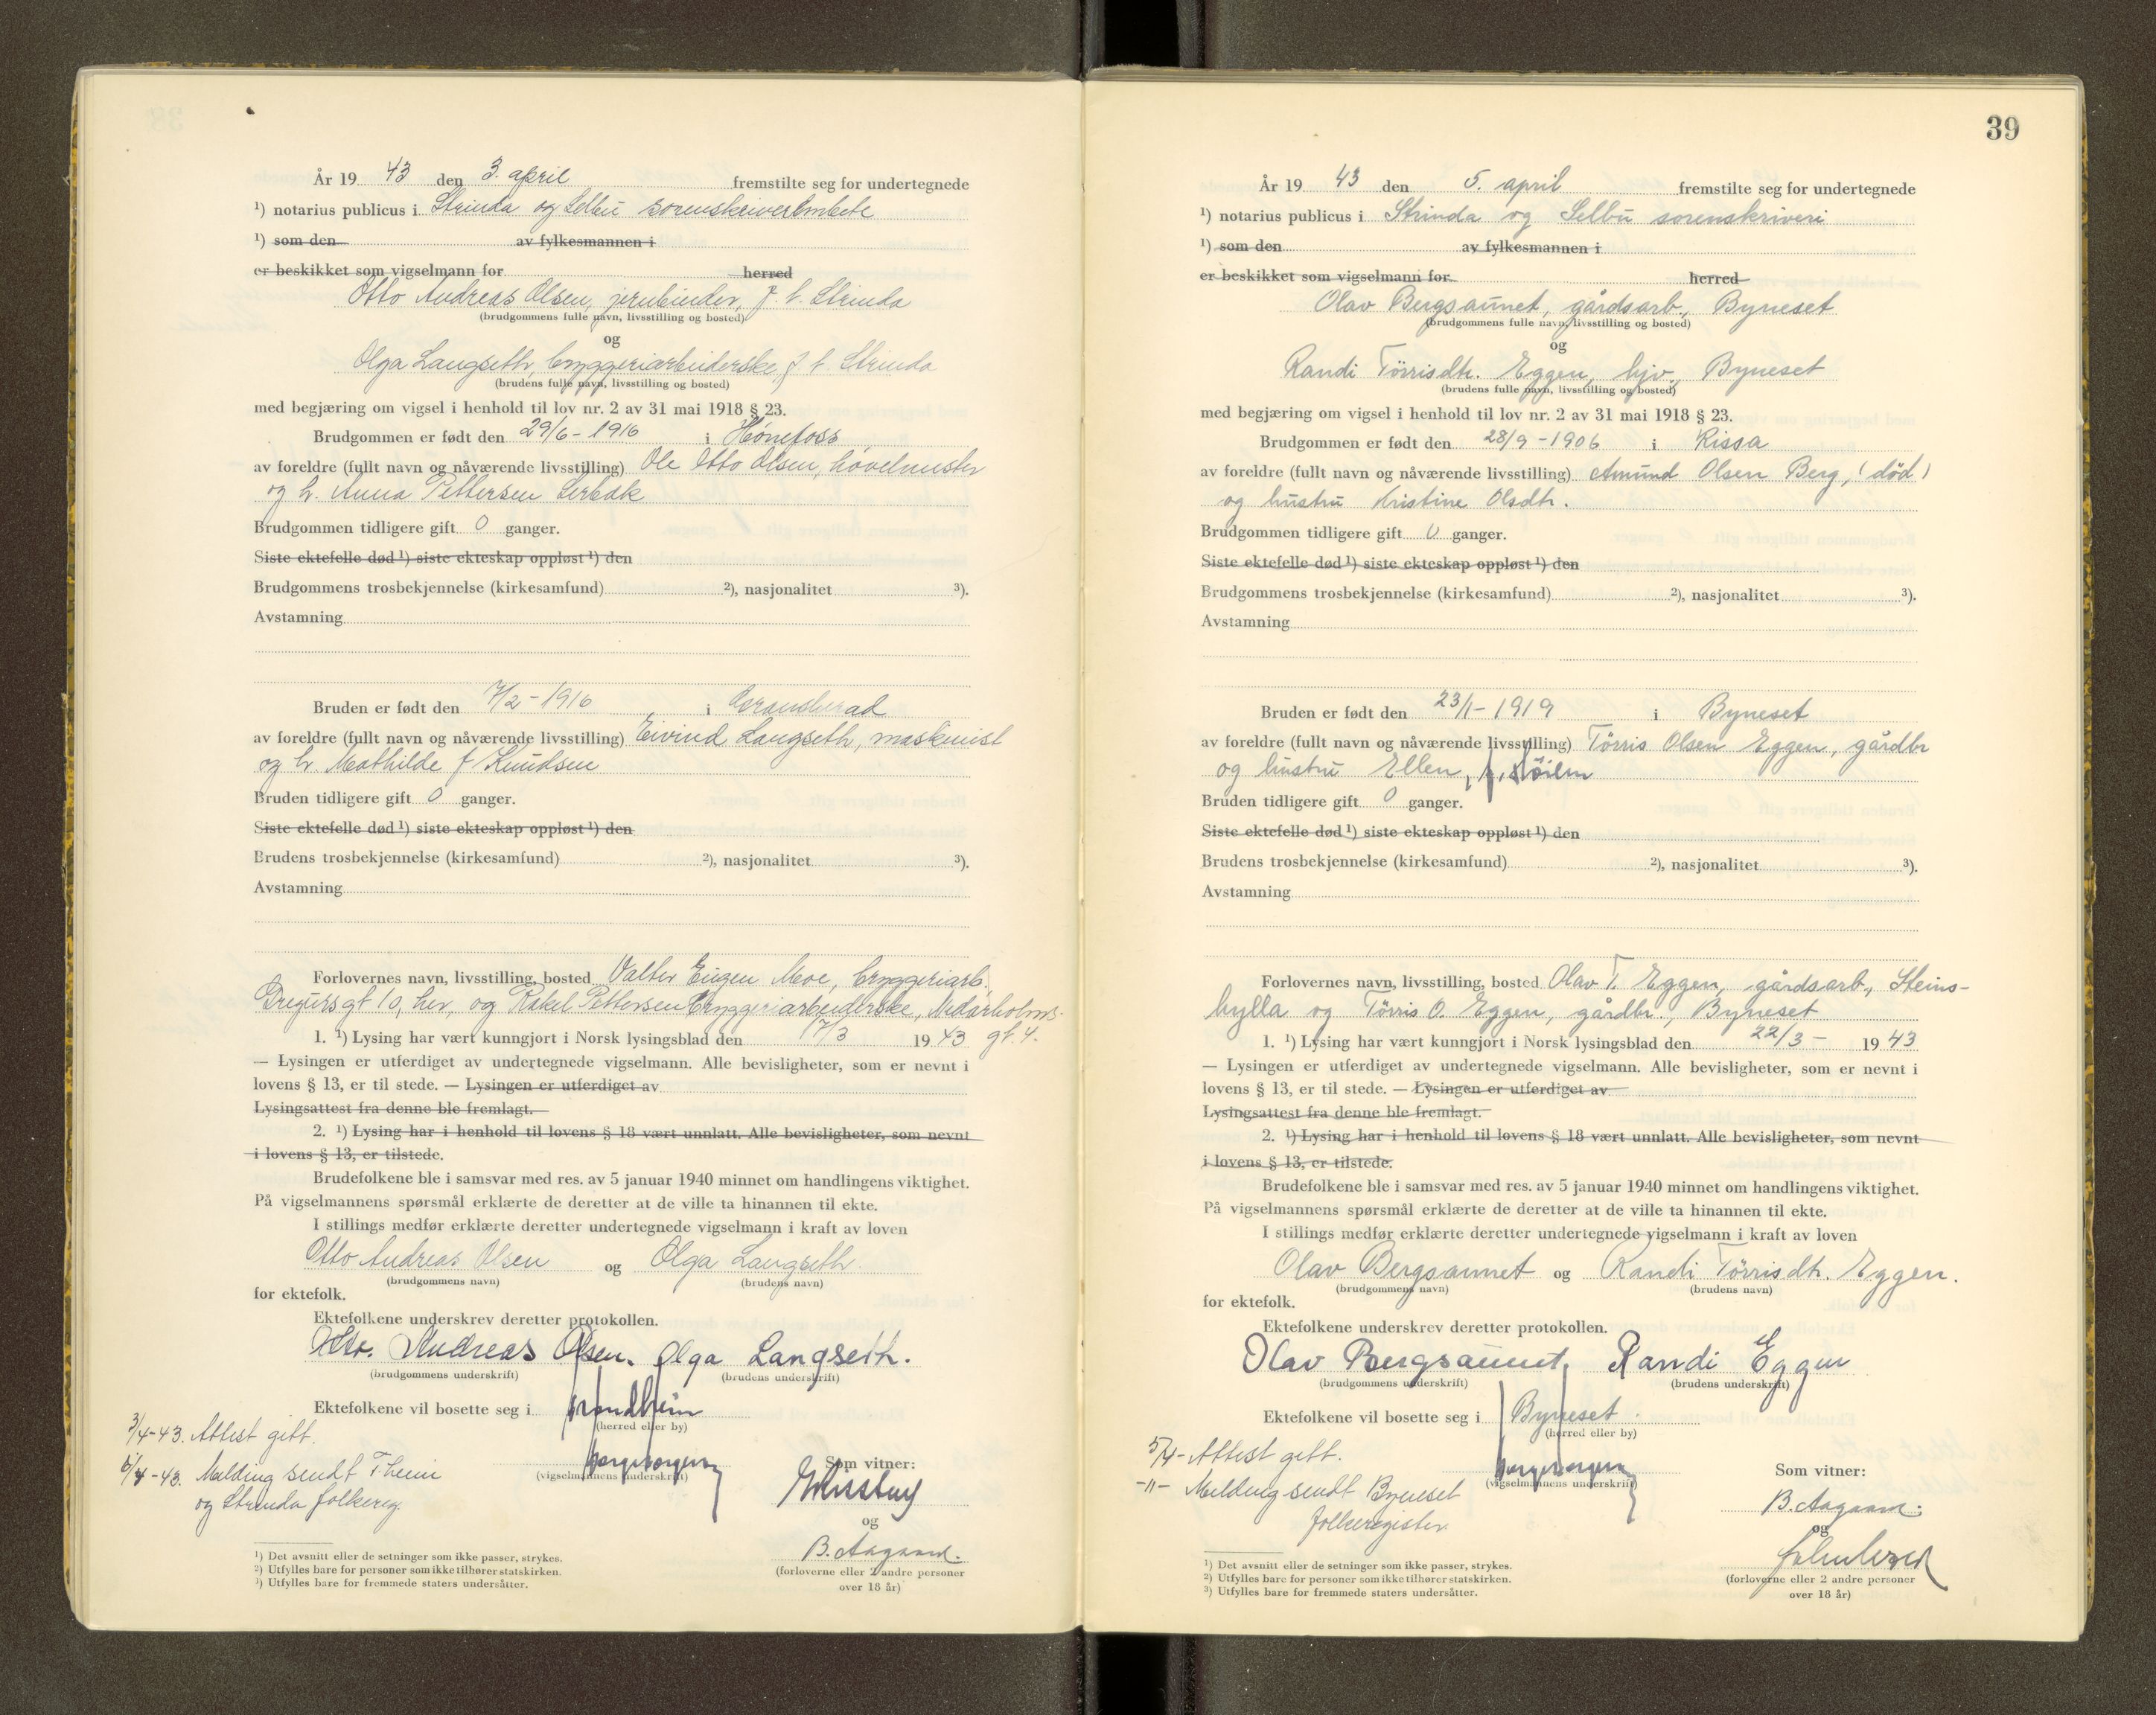 År 19 43 den 3. april fremstilte seg for undertegnede
¹) notarius publicus i Strinda og Selbu sorenskriverembete
¹) som den av fylkesmannen i
er beskikket som vigselmann for herred
Otto Andreas Olsen, jernbinder, f. t. Strinda
(brudgommens fulle navn, livsstilling og bosted)
og
Olga Langseth, bryggeriarbeiderske, f. t. Strinda
(brudens fulle navn, livsstilling og bosted)
med begjæring om vigsel i henhold til lov nr. 2 av 31 mai 1918 § 23.
Brudgommen er født den 29/6 - 1916 i Hønefoss
av foreldre (fullt navn og nåværende livsstilling) Ole Otto Olsen, høvelmester
og h. Anna Pettersen
Brudgommen tidligere gift 0 ganger.
Siste ektefelle død ¹) siste ekteskap oppløst ¹) den
Brudgommens trosbekjennelse (kirkesamfund) ²), nasjonalitet ³).
Avstamning
Bruden er født den 7/2 - 1916 i Gransherad
av foreldre (fullt navn og nåværende livsstilling) Eivind Langseth, maskinist
og h. Mathilde f Knudsen
Bruden tidligere gift 0 ganger.
Siste ektefelle død ¹) siste ekteskap oppløst ¹) den
Brudens trosbekjennelse (kirkesamfund) ²), nasjonalitet ³).
Avstamning
Forlovernes navn, livsstilling, bosted Valter Eugen Moe, bryggeriarb.,
gt 10, her, og Rakel Pettersen bryggeriarbeiderske, Nidarholms-
1. ¹) Lysing har vært kunngjort i Norsk lysingsblad den 17/3 19 43 gt. 4.
— Lysingen er utferdiget av undertegnede vigselmann. Alle bevisligheter, som er nevnt i
lovens § 13, er til stede. — Lysingen er utferdiget av
Lysingsattest fra denne ble fremlagt.
2. ¹) Lysing har i henhold til lovens § 18 vært unnlatt. Alle bevisligheter, som nevnt
i lovens § 13, er tilstede.
Brudefolkene ble i samsvar med res. av 5 januar 1940 minnet om handlingens viktighet.
På vigselmannens spørsmål erklærte de deretter at de ville ta hinannen til ekte.
I stillings medfør erklærte deretter undertegnede vigselmann i kraft av loven
Otto Andreas Olsen og Olga Langseth
(brudgommens navn) (brudens navn)
for ektefolk.
Ektefolkene underskrev deretter protokollen.
Otto. Andreas Olsen. Olga Langseth.
(brudgommens underskrift) (brudens underskrift)
Ektefolkene vil bosette seg i Trondheim
(herred eller by)
3/4-43. Attest gitt.
6/4-43. Melding sendt T.heim
og Strinda folkereg.
(vigselmannens underskrift)
Som vitner:
og
B. Aagaard.
(forloverne eller 2 andre personer
over 18 år)
¹) Det avsnitt eller de setninger som ikke passer, strykes.
²) Utfylles bare for personer som ikke tilhører statskirken.
³) Utfylles bare for fremmede staters undersåtter.
39
År 19 43 den 5. april fremstilte seg for undertegnede
¹) notarius publicus i Strinda og Selbu sorenskriveri
¹) som den av fylkesmannen i
er beskikket som vigselmann for herred
Olav Bergsaunet, gårdsarb., Byneset
(brudgommens fulle navn, livsstilling og bosted)
og
Randi Tørrisdtr. Eggen, hjv., Byneset
(brudens fulle navn, livsstilling og bosted)
med begjæring om vigsel i henhold til lov nr. 2 av 31 mai 1918 § 23.
Brudgommen er født den 28/9 - 1906 i Rissa
av foreldre (fullt navn og nåværende livsstilling) Amund Olsen Berg, (død)
og hustru Kristine Olsdtr.
Brudgommen tidligere gift 0 ganger.
Siste ektefelle død ¹) siste ekteskap oppløst ¹) den
Brudgommens trosbekjennelse (kirkesamfund) ²), nasjonalitet ³).
Avstamning
Bruden er født den 23/1 - 1919 i Byneset
av foreldre (fullt navn og nåværende livsstilling) Tørris Olsen Eggen, gårdbr
og hustru Ellen, f.
Bruden tidligere gift 0 ganger.
Siste ektefelle død ¹) siste ekteskap oppløst ¹) den
Brudens trosbekjennelse (kirkesamfund) ²), nasjonalitet ³).
Avstamning
Forlovernes navn, livsstilling, bosted Olav T. Eggen, gårdsarb., Steins-
hylla og Tørris O. Eggen, gårdbr., Byneset
1. ¹) Lysing har vært kunngjort i Norsk lysingsblad den 22/3 - 19 43
— Lysingen er utferdiget av undertegnede vigselmann. Alle bevisligheter, som er nevnt i
lovens § 13, er til stede. — Lysingen er utferdiget av
Lysingsattest fra denne ble fremlagt.
2. ¹) Lysing har i henhold til lovens § 18 vært unnlatt. Alle bevisligheter, som nevnt
i lovens § 13, er tilstede.
Brudefolkene ble i samsvar med res. av 5 januar 1940 minnet om handlingens viktighet.
På vigselmannens spørsmål erklærte de deretter at de ville ta hinannen til ekte.
I stillings medfør erklærte deretter undertegnede vigselmann i kraft av loven
Olav Bergsaunet og Randi Tørrisdtr. Eggen.
(brudgommens navn) (brudens navn)
for ektefolk.
Ektefolkene underskrev deretter protokollen.
Olav Bergsaunet, Randi Eggen
(brudgommens underskrift) (brudens underskrift)
Ektefolkene vil bosette seg i Byneset.
(herred eller by)
5/4- Attest gitt.
-"- Melding sendt Byneset
folkeregister
(vigselmannens underskrift)
Som vitner:
B. Aagaard.
og
(forloverne eller 2 andre personer
over 18 år)
¹) Det avsnitt eller de setninger som ikke passer, strykes.
²) Utfylles bare for personer som ikke tilhører statskirken.
³) Utfylles bare for fremmede staters undersåtter.